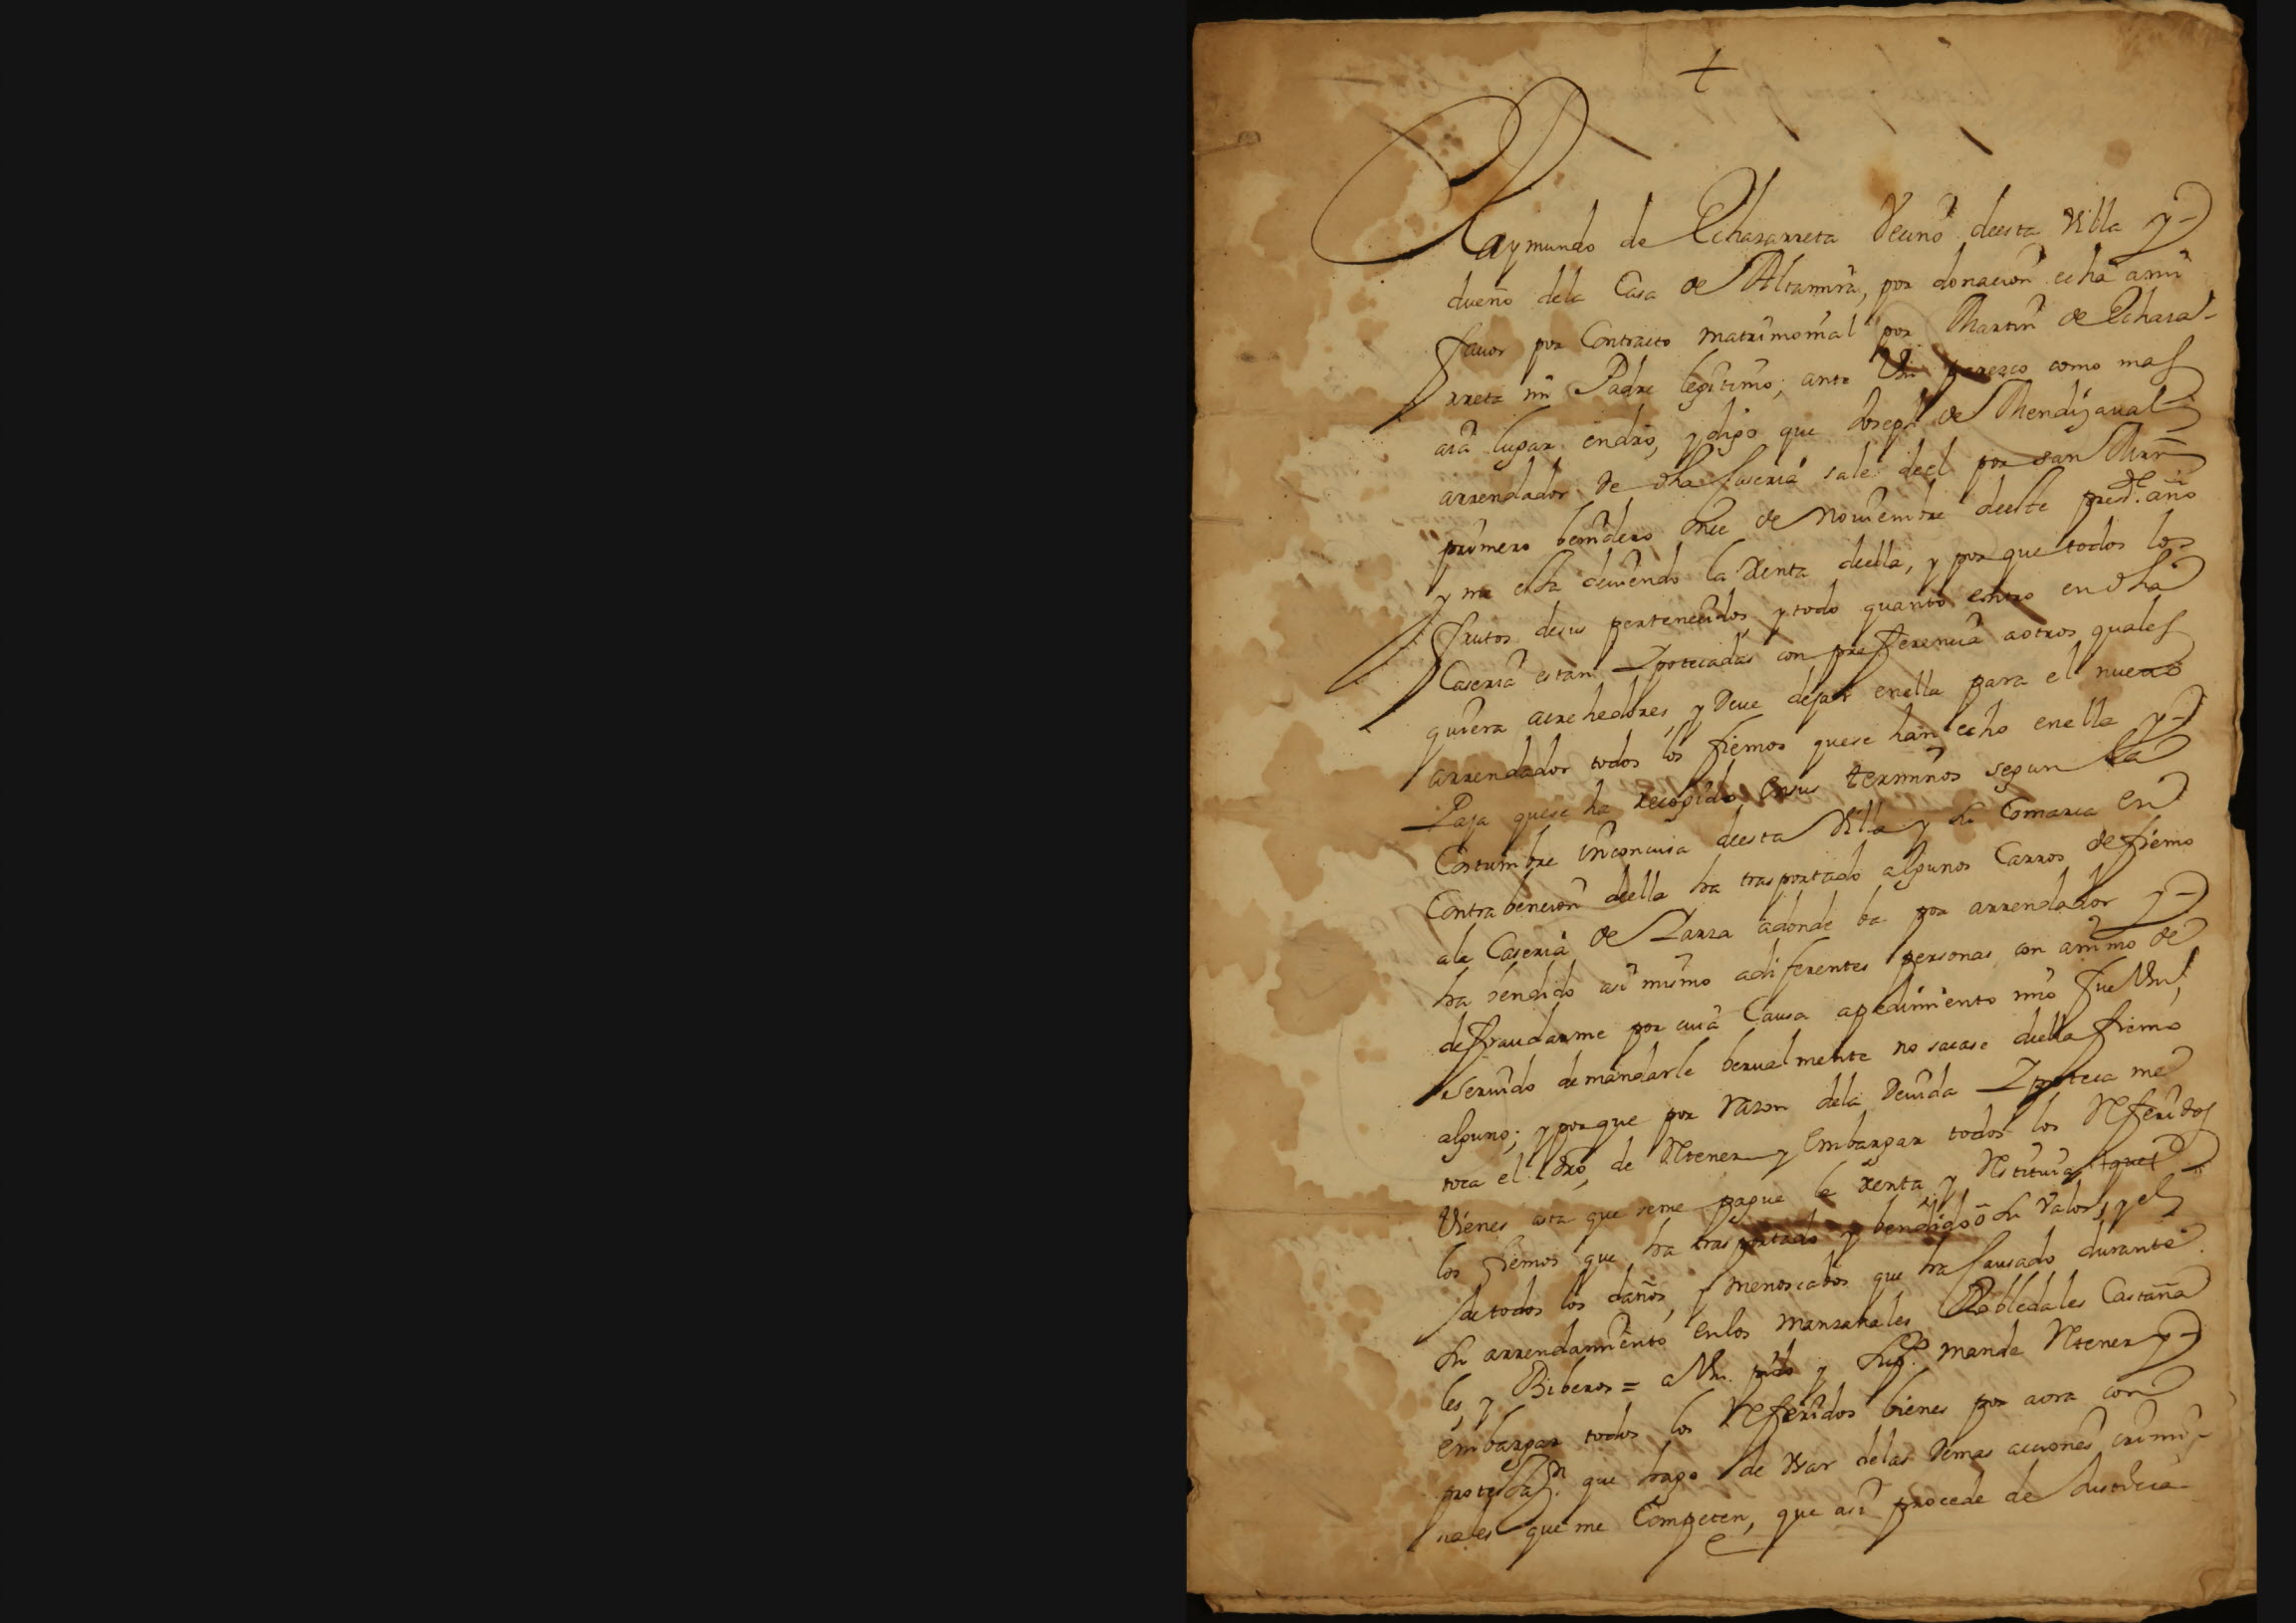 +
Raymundo de Echazarreta Vecino deesta Villa y
dueño dela Casa de Altamira, por donacion echa ami
fauor por Contracto matrimonial por Martin de Echaza-
rreta mi Padre legitimo; ante Vm parezco como mas
aia lugar endro, y digo que Joseph de Mendizaual
arrendador de dha Caseria sale deel por san Mrn
primero benidero Once de Nouiembre deeste pres.te año
y me esta deuiendo la Renta deella, y por que todos los
frutos desus pertenecidos, y todo quanto entro en dha
Caseria estan Ypotecadas con preferencia aotros quales
quiera acrehedores, y Deue dejar enella para el nueuo
arrendador todos los fiemos quese han echo enella y
Paja quese ha recogido ensus terminos segun la
Costumbre inconcusa deesta Villa y su Comarca en
Contrabencion deella ha trasportado algunos Carros de fiemo
ala Caseria de Larza adonde ba por arrendador y
ha bendido asi mismo adiferentes personas con animo de
defraudarme por cuia Causa apedimiento mio fue Vm,
seruido demandarle berualmente no sacase deella fiemo
alguno; y porque por razon dela Deuida Ypoteca me
toca el dro, de Retener y Embargar todos los Referidos
Vienes asta que seme pague la renta, y Restituia
los fiemos que ha trasportado y bendido ò su Valor, y el
de todos los daños, y menoscabos que ha Causado durante
su arrendamiento enlos manzanales Robledales Castaña
les, y Biberos = a Vm. pido y supp.co mande Retener y
embargar todos los Referidos bienes por aora con
protesta.n que hago de Vsar delas Demas acciones crimi-
nales que me Competen, que asi procede de Justicia